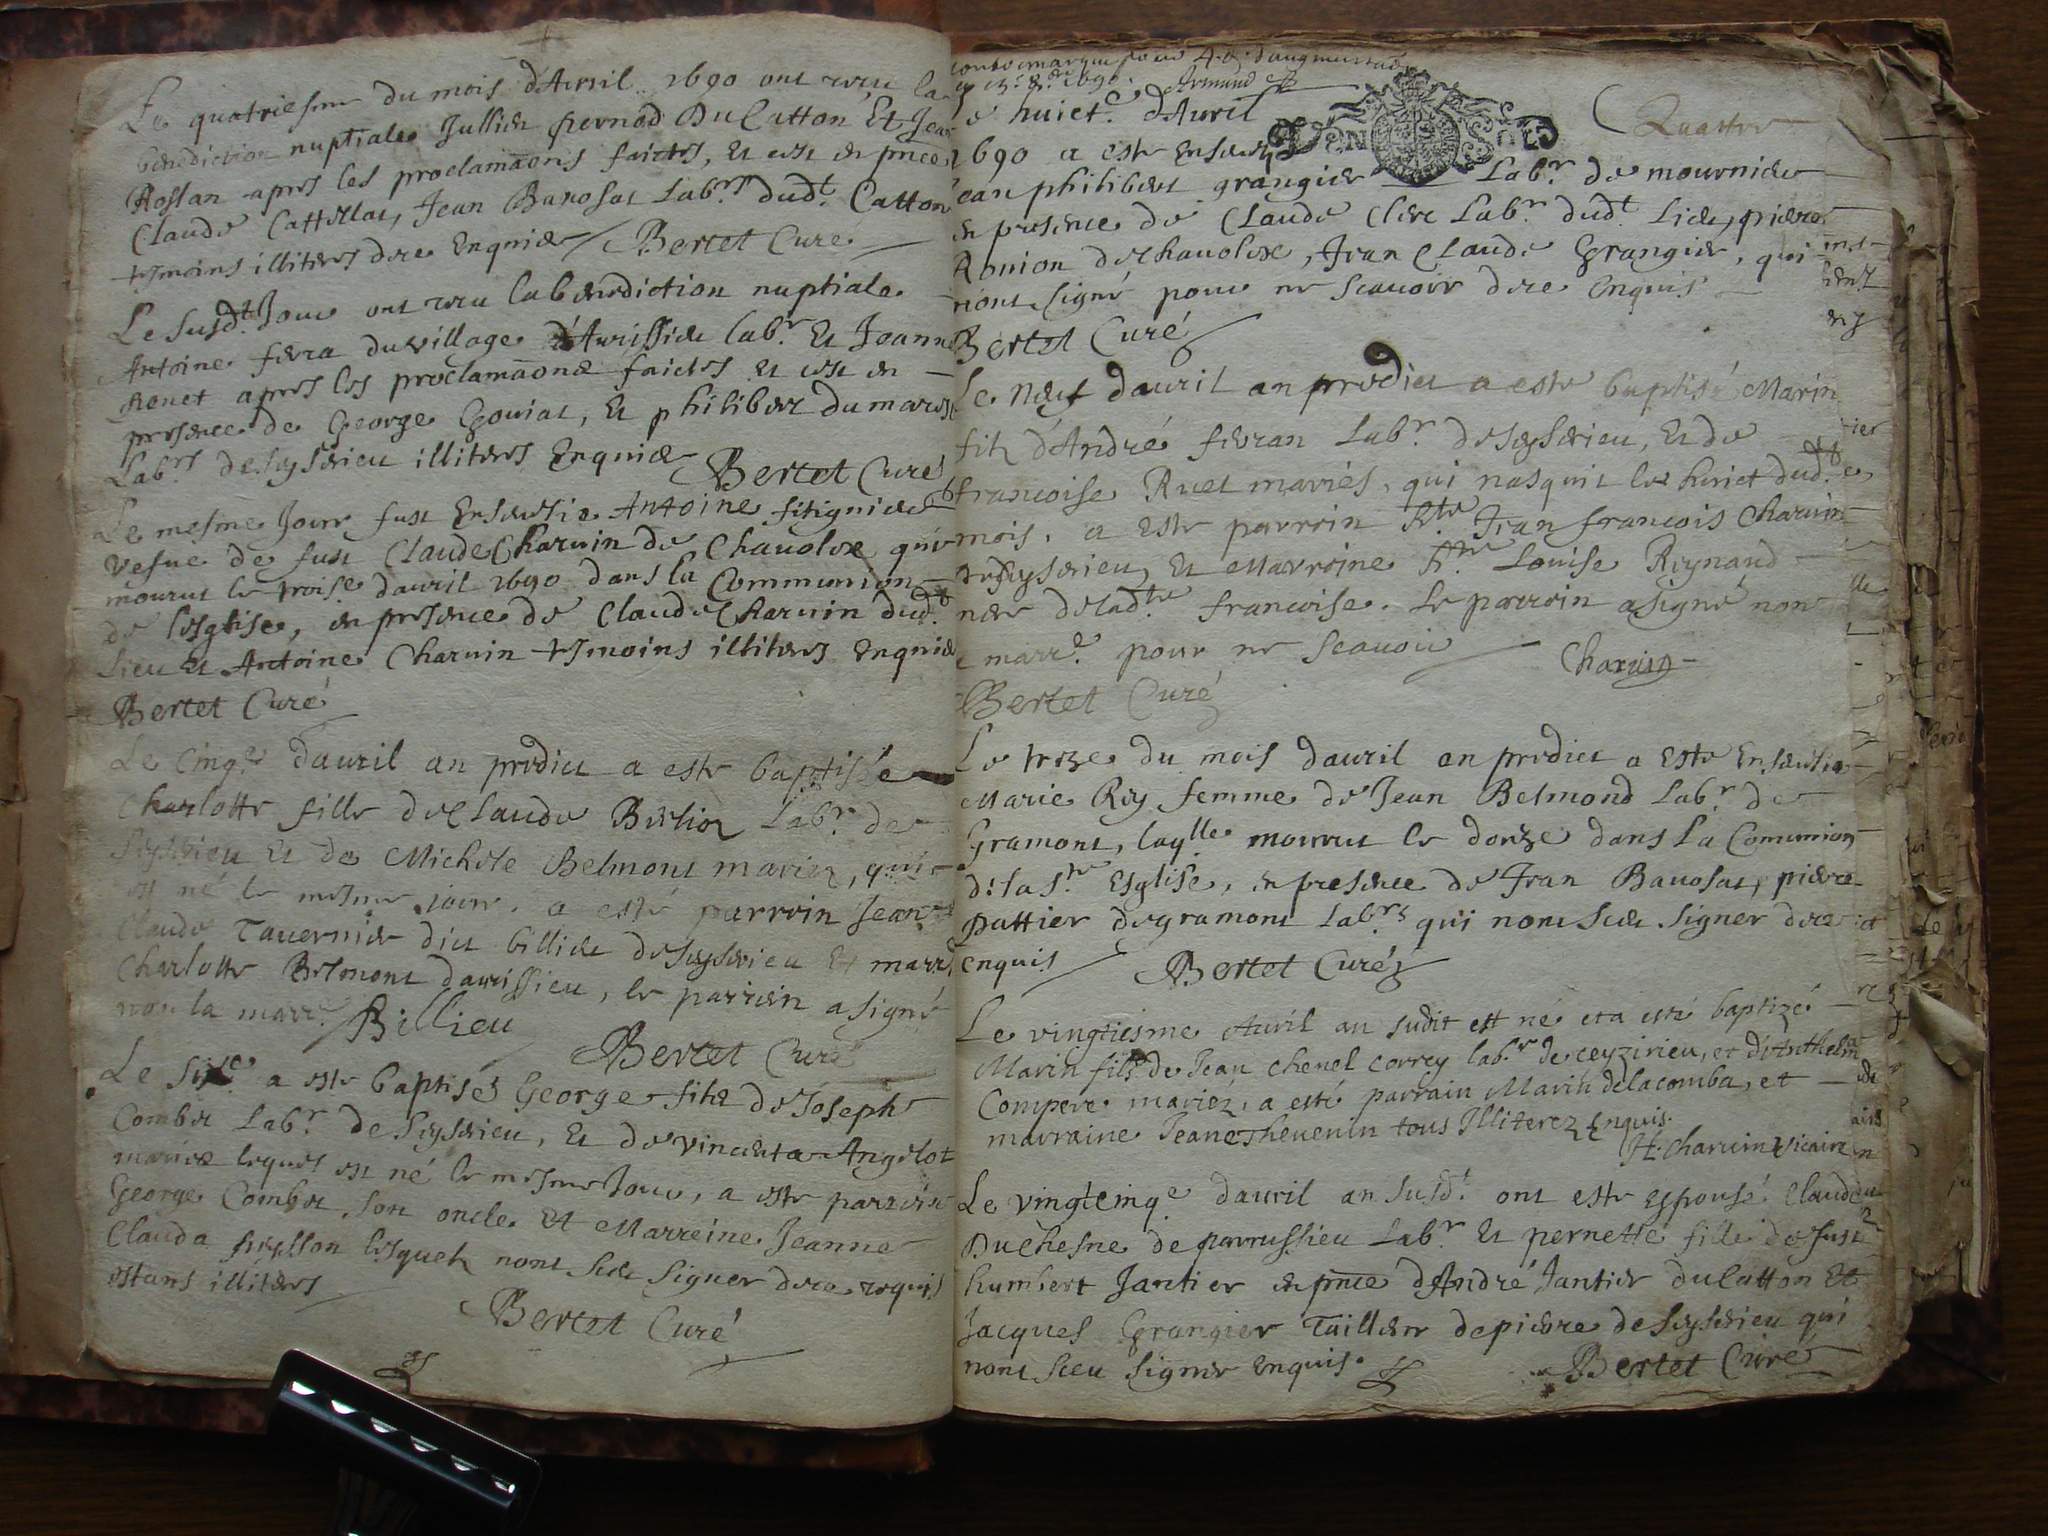 Le quatriesme du mois d'Avril 1690 ont reçu la
benediction nuptiale Jullien pernod Du Catton Et Jeanne
Roslan apres les proclamaons faictes, Et ce en pnce
Claude Cattillat, Jean Bavosat Labrs dudt Catton
tesmoins illiteres de ce Enquis Bertet Curé
Le susdt Jour ont receu la benediction nuptiale
Antoine fevra du village d'Avrissieu labr Et Jeanne
Ronet apres les proclamaons faictes et ce en
presence de George Goviat, Et philibert dumarest
Labrs de Seyserieu illiteres Enquis Bertet Curé
Le mesme Jour fust Ensevelie Antoine fitignier
vefve de fust Claude Charvin de Chavolex qui
mourut le troise d'avril 1690 dans la Communion
de l'esglise, en presence de Claude Charvin dudt
Lieu Et Antoine Charvin tesmoins illiteres Enquis
Bertet Curé
Le cinqe d'avril an predict a este baptisée
Charlotte fille de Claude Berlioz Labr de
Seyserieu Et de Michele Belmont mariez, qui
est né le mesme jour. a esté parrein Jean
Claude Tavernier dict billieu de Seyserieu Et marre
Charlotte Belmont d'avrissieu, le parrein a signé
non la marre Billieu
Bertet Curé
Le sixe a este baptisé George filz de Joseph
Combet Labr de Seyserieu, Et de vincenta Angelot
mariez lequel est né le mesme Jour, a este parrein
George Combet son oncle Et Marreine Jeanne
Clauda lesquelz nont sceu signer de ce requis
estans illiteres
Bertet Curé
contremarque pour d'augmentaon
1690. Armand
Le huicte d'Avril GEN SOLS Quattre
1690 a este Ensevely
Jean philibert grangier Labr de mournieu
en presence de Claude Clerc Labr dudt Lieu, pierre
Ronion de chavolex, Jean Claude Grangier, qui
n'ont signé pour ne scavoir de ce Enquis
Bertet Curé
Le neuf d'avril an predict a este baptisé Marin
filz d'André fevran Labr de Seyserieu, Et de
francoise Ruet mariés, qui nasquit le huict dudt
mois, a este parrein Jean francois Charvin
de Seyserieu, Et Marreine Louise Reynaud
mere de ladte francoise. Le parrein a signé non
la marre pour ne scavoir Charvin
Bertet Curé
Le treze du mois d'avril an predict a este Ensevelie
Marie Rey femme de Jean Belmond Labr de
Gramont, laqlle mourut le douze dans la Comunion
de la Ste Esglise, en presence de Jean Bavosat, pierre
pattier de gramont Labrs qui nont sceu signer de ce
enquis Bertet Curé
Le vingtiesme Avril an sudit est né et a esté baptizé
Marin fils de Jean chenel correy labr de ceyzirieu, et d'Anthelma
Compere mariez, a esté parrain Marin delacomba, et
marraine Jeane Thevenin tous Illiterez Enquis.
H. Charvin vicaire
Le vingtcinqe d'avril an susdt ont este Espousé Claude
Duchesne de parrussieu Labr Et pernette fille de fust
humbert Jantier en pnce d'André Jantier du Catton Et
Jacques Grangier Tailleur de pierre de Seyserieu qui
nont sceu signer enquis. Bertet Curé